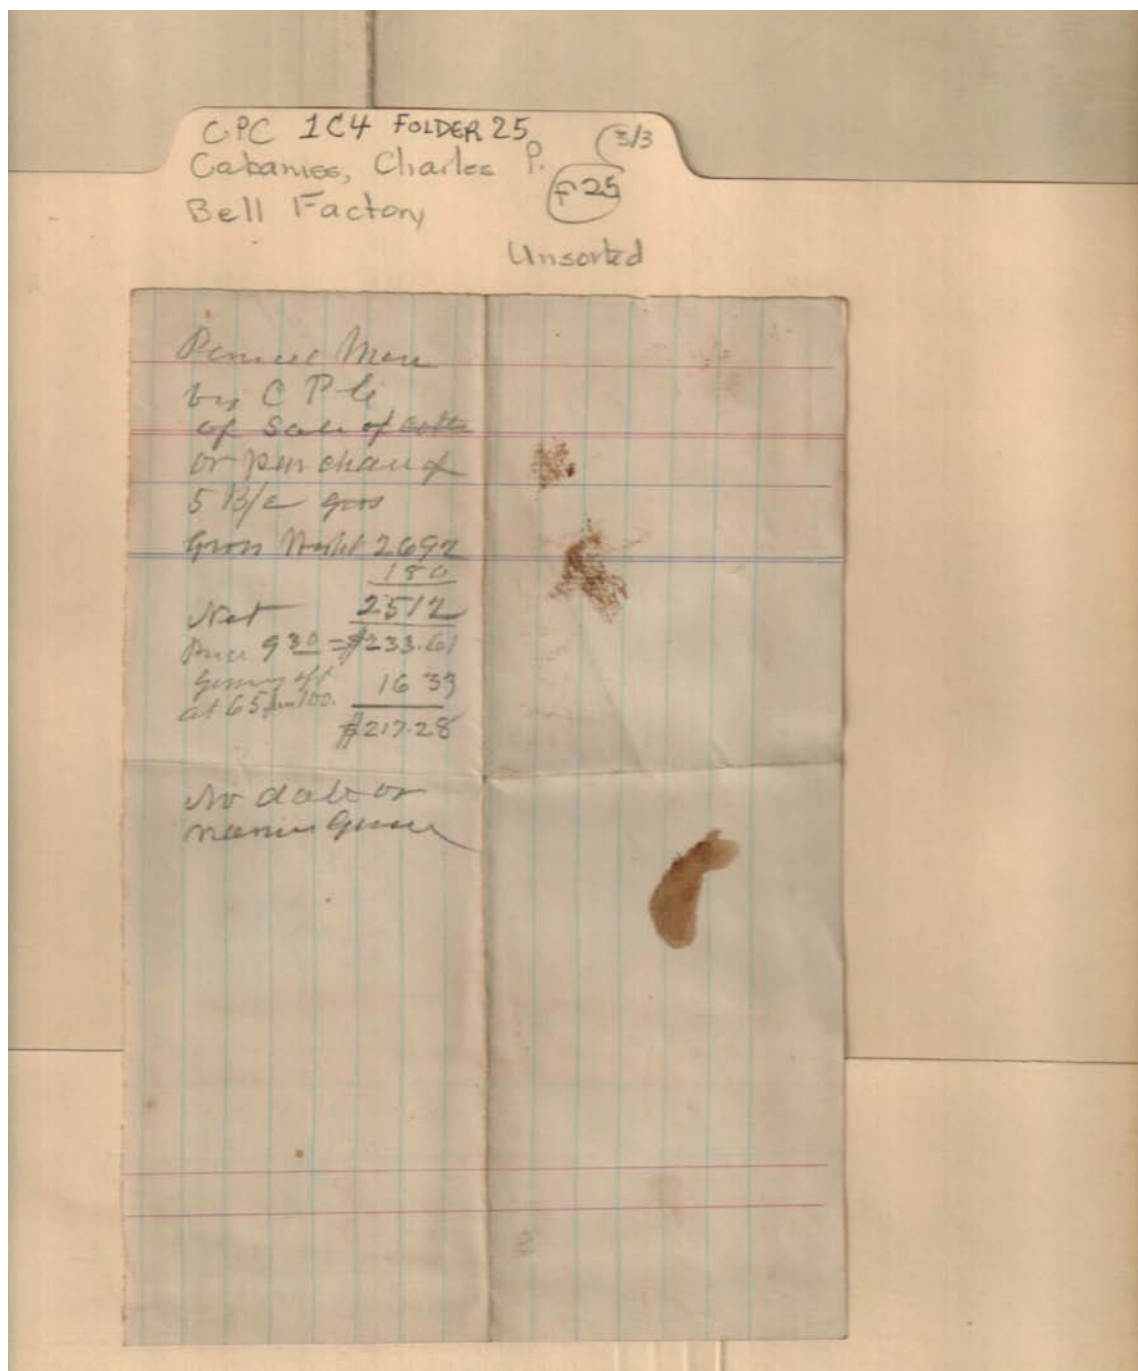 CPC 1C4 FOLDER 25
3/3
Cabaniss, Charles P.
F 25
Bell Factory
Unsorted
Pencil Mem
by C P C
of Sale of cotton
or purchase of
5 B/c gros
Gross Weight 2692
180
Net 2512
Price 930 = $233.61
at 65 per 100. 16 33
$217.28
No date or
names given